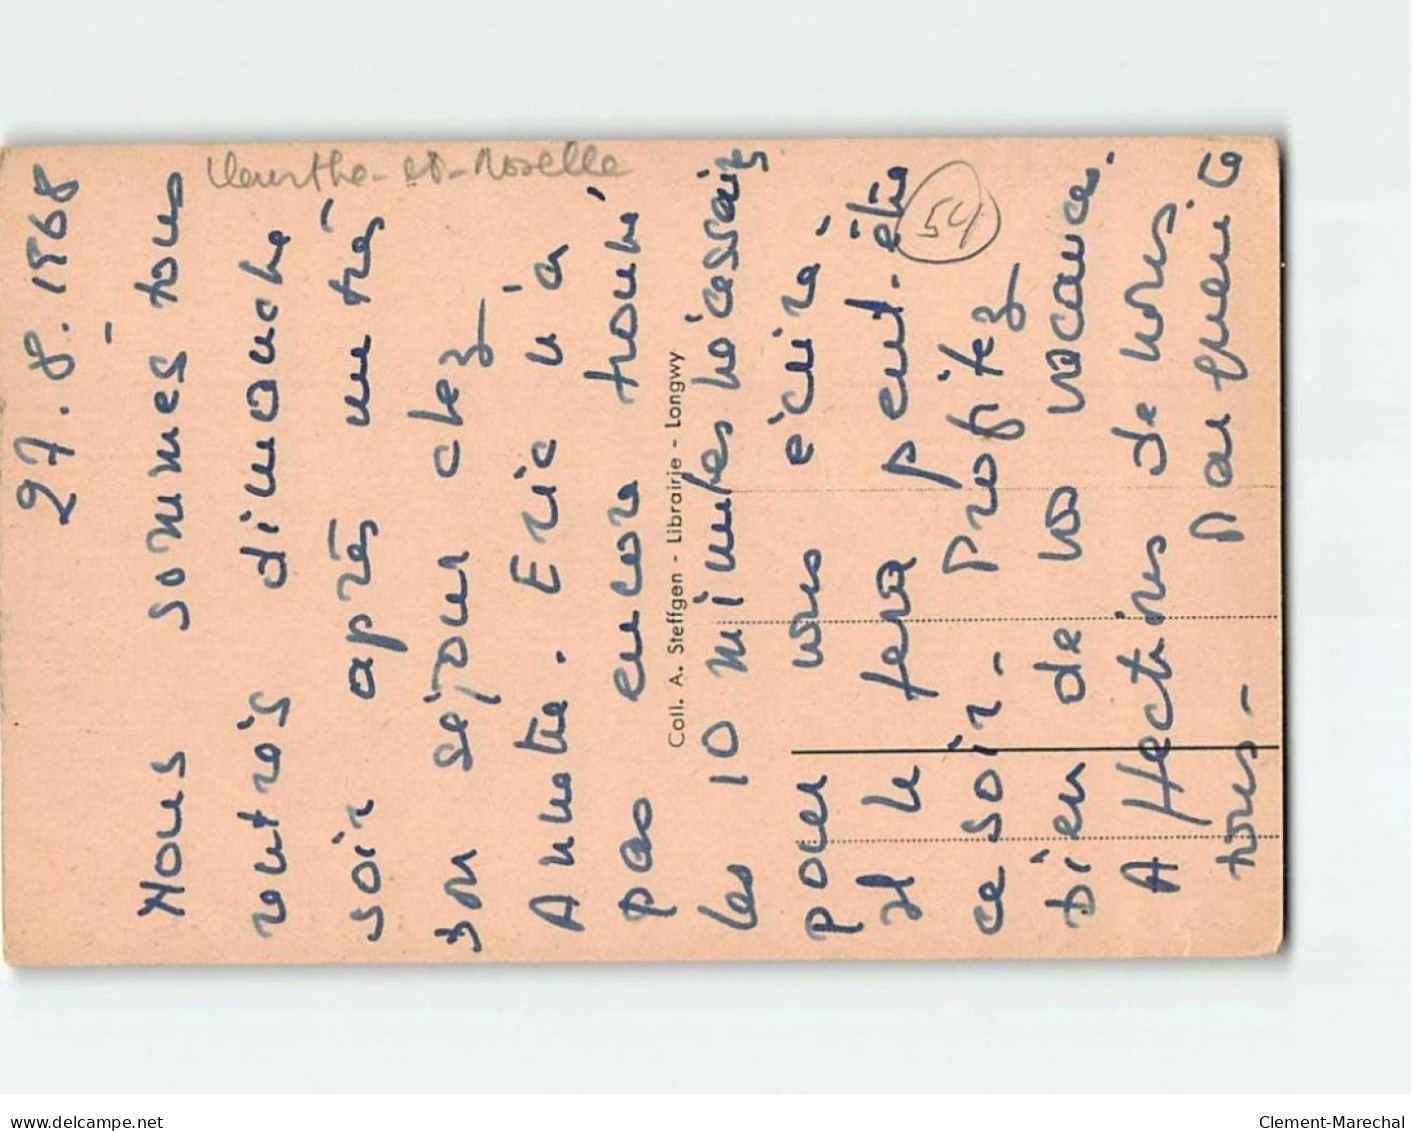 27.8.1968
Nous sommes tous
rentrés dimanche
soir après un très
bon séjour chez
Annette. Eric n'a
pas encore trouvé
les 10 minutes nécessaires
pour vous écrire,
il le fera peut-être
ce soir - Profitez
bien de vos vacances.
Affections de nous
tous -
Meurthe-et-Moselle
54
Coll. A. Steffgen - Librairie - Longwy
delcampe.net
Clement-Marechal